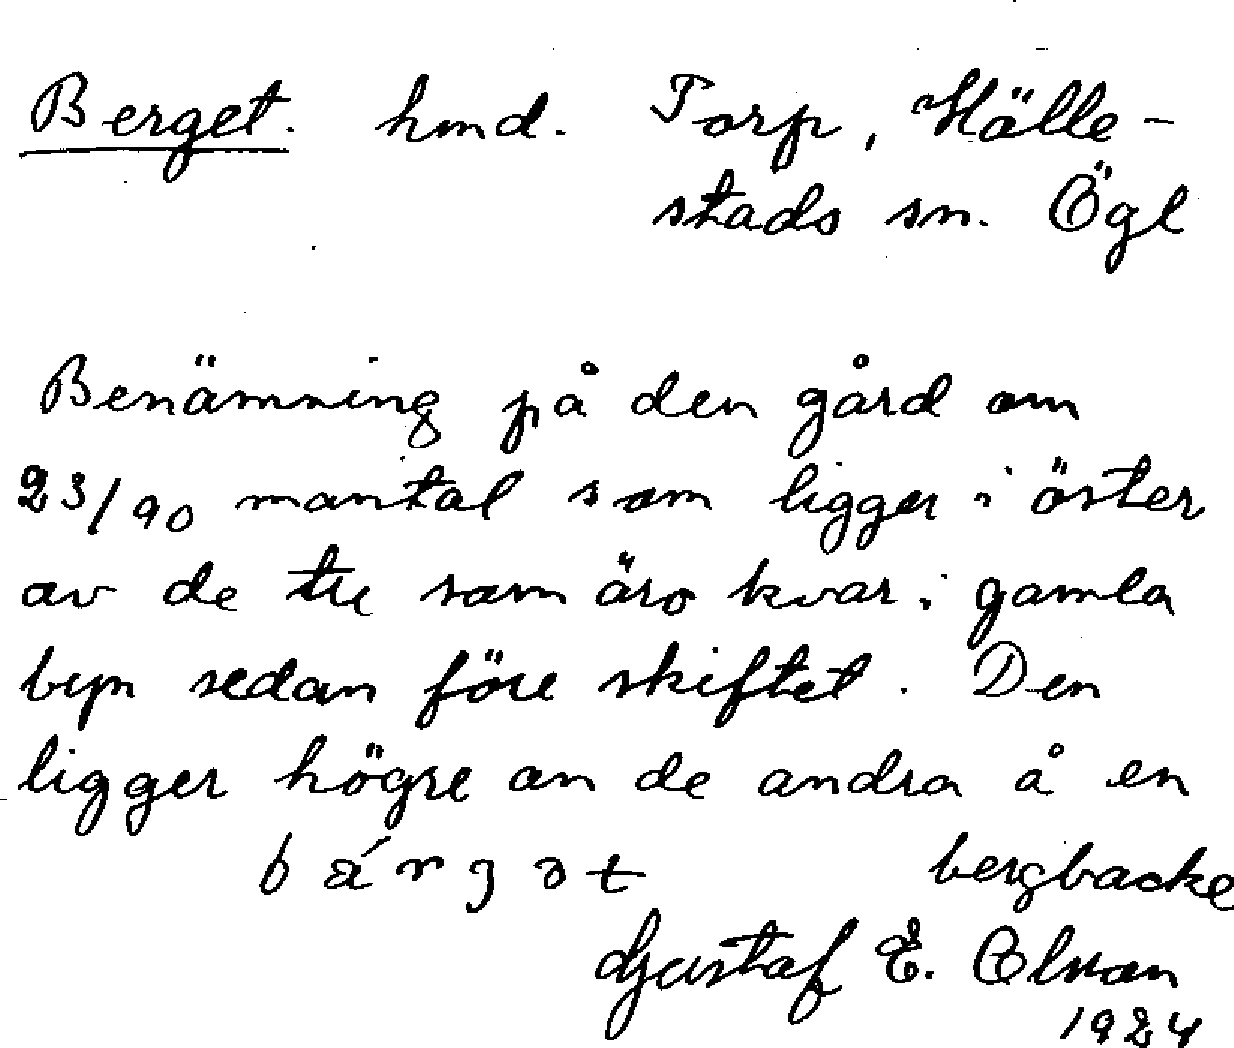 Berget. hmd. Torp, Hälle-
stads sn. Ögl
Benämning på den gård om
23/90 mantal som ligger i öster
av de tre som äro kvar i gamla
byn sedan före skiftet. Den
ligger högre an de andra å en
bergbacke
bárgət
Gustaf E. Olsson
1924